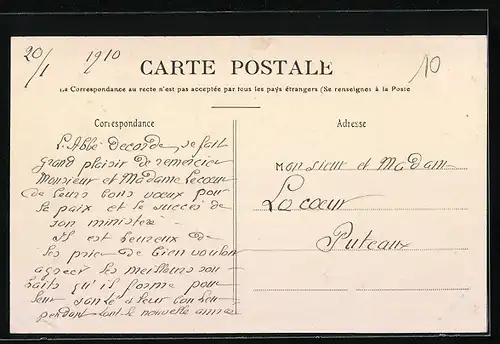 20/1 1910
10
CARTE POSTALE
La Correspondance au recto n'est pas acceptée par tous les pays étrangers (Se renseigner à la Poste
Correspondance
Adresse
L'Abbé Decorde, se fait
grand plaisir de remercier
Monsieur et Madame Lecoeur
de leurs bons voeux pour
la paix et le succès de
son ministère
il est heureux de
les prier de bien vouloir
agréer les meilleurs sou-
haits qu'il forme pour
leur santé & leur bonheur
pendant toute la nouvelle année
Monsieur et Madam
Lecoeur
Puteaux